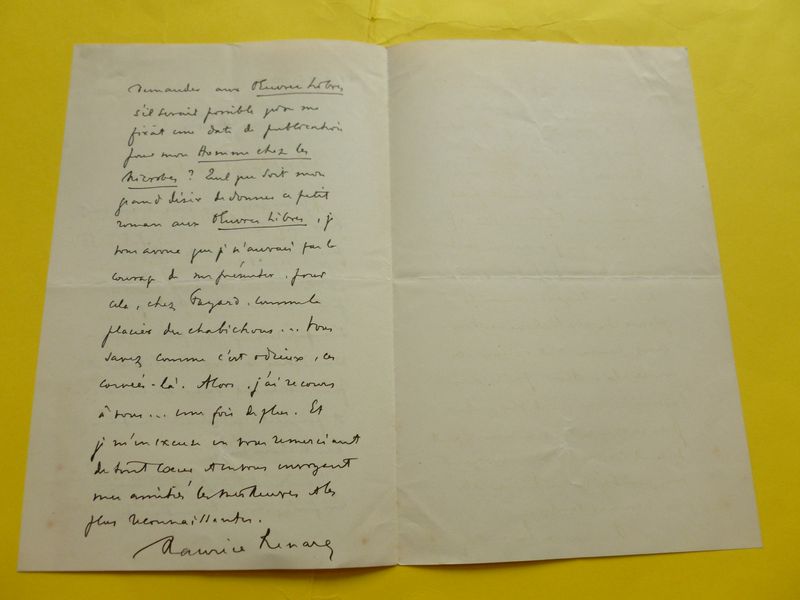 demander aux Œuvres Libres
s'il serait possible qu'on me
fixât une date de publication
pour mon Homme chez les
Microbes ? Quel que soit mon
grand désir de donner ce petit
roman aux Œuvres Libres, je
vous avoue que je n'aurais pas le
courage de me présenter, pour
cela, chez Fayard, comme le
placier du chabichous... Vous
savez comme c'est odieux, ces
corvées-là. Alors, j'ai recours
à vous... une fois de plus. Et
je m'en excuse en vous remerciant
de tout cœur et en vous envoyant
mes amitiés les meilleures et les
plus reconnaissantes.
Maurice Renard